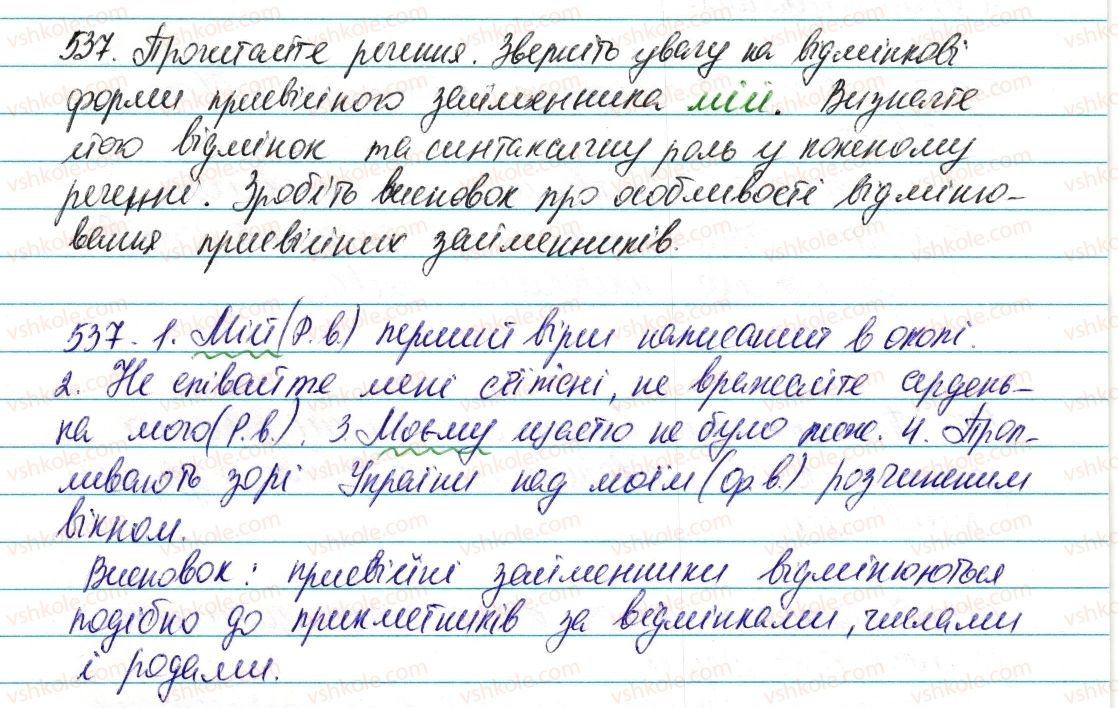 537. Прочитайте речення. Зверніть увагу на відмінкові
форми присвійного займенника мій. Визначте
його відмінок та синтаксичну роль у кожному
реченні. Зробіть висновок про особливості відміню-
вання присвійних займенників.
537. 1. Мій (Р.в.) перший вірш написаний в окопі.
2. Не співайте мені цієї пісні, не вражайте сердень-
ка мого (Р.в.). 3. Моєму щастю не було меж. 4. Проп-
ливають зорі України над моїм (Ор.в.) розчиненим
вікном.
Висновок: присвійні займенники відмінюються
подібно до прикметників за відмінками, числами
і родами.